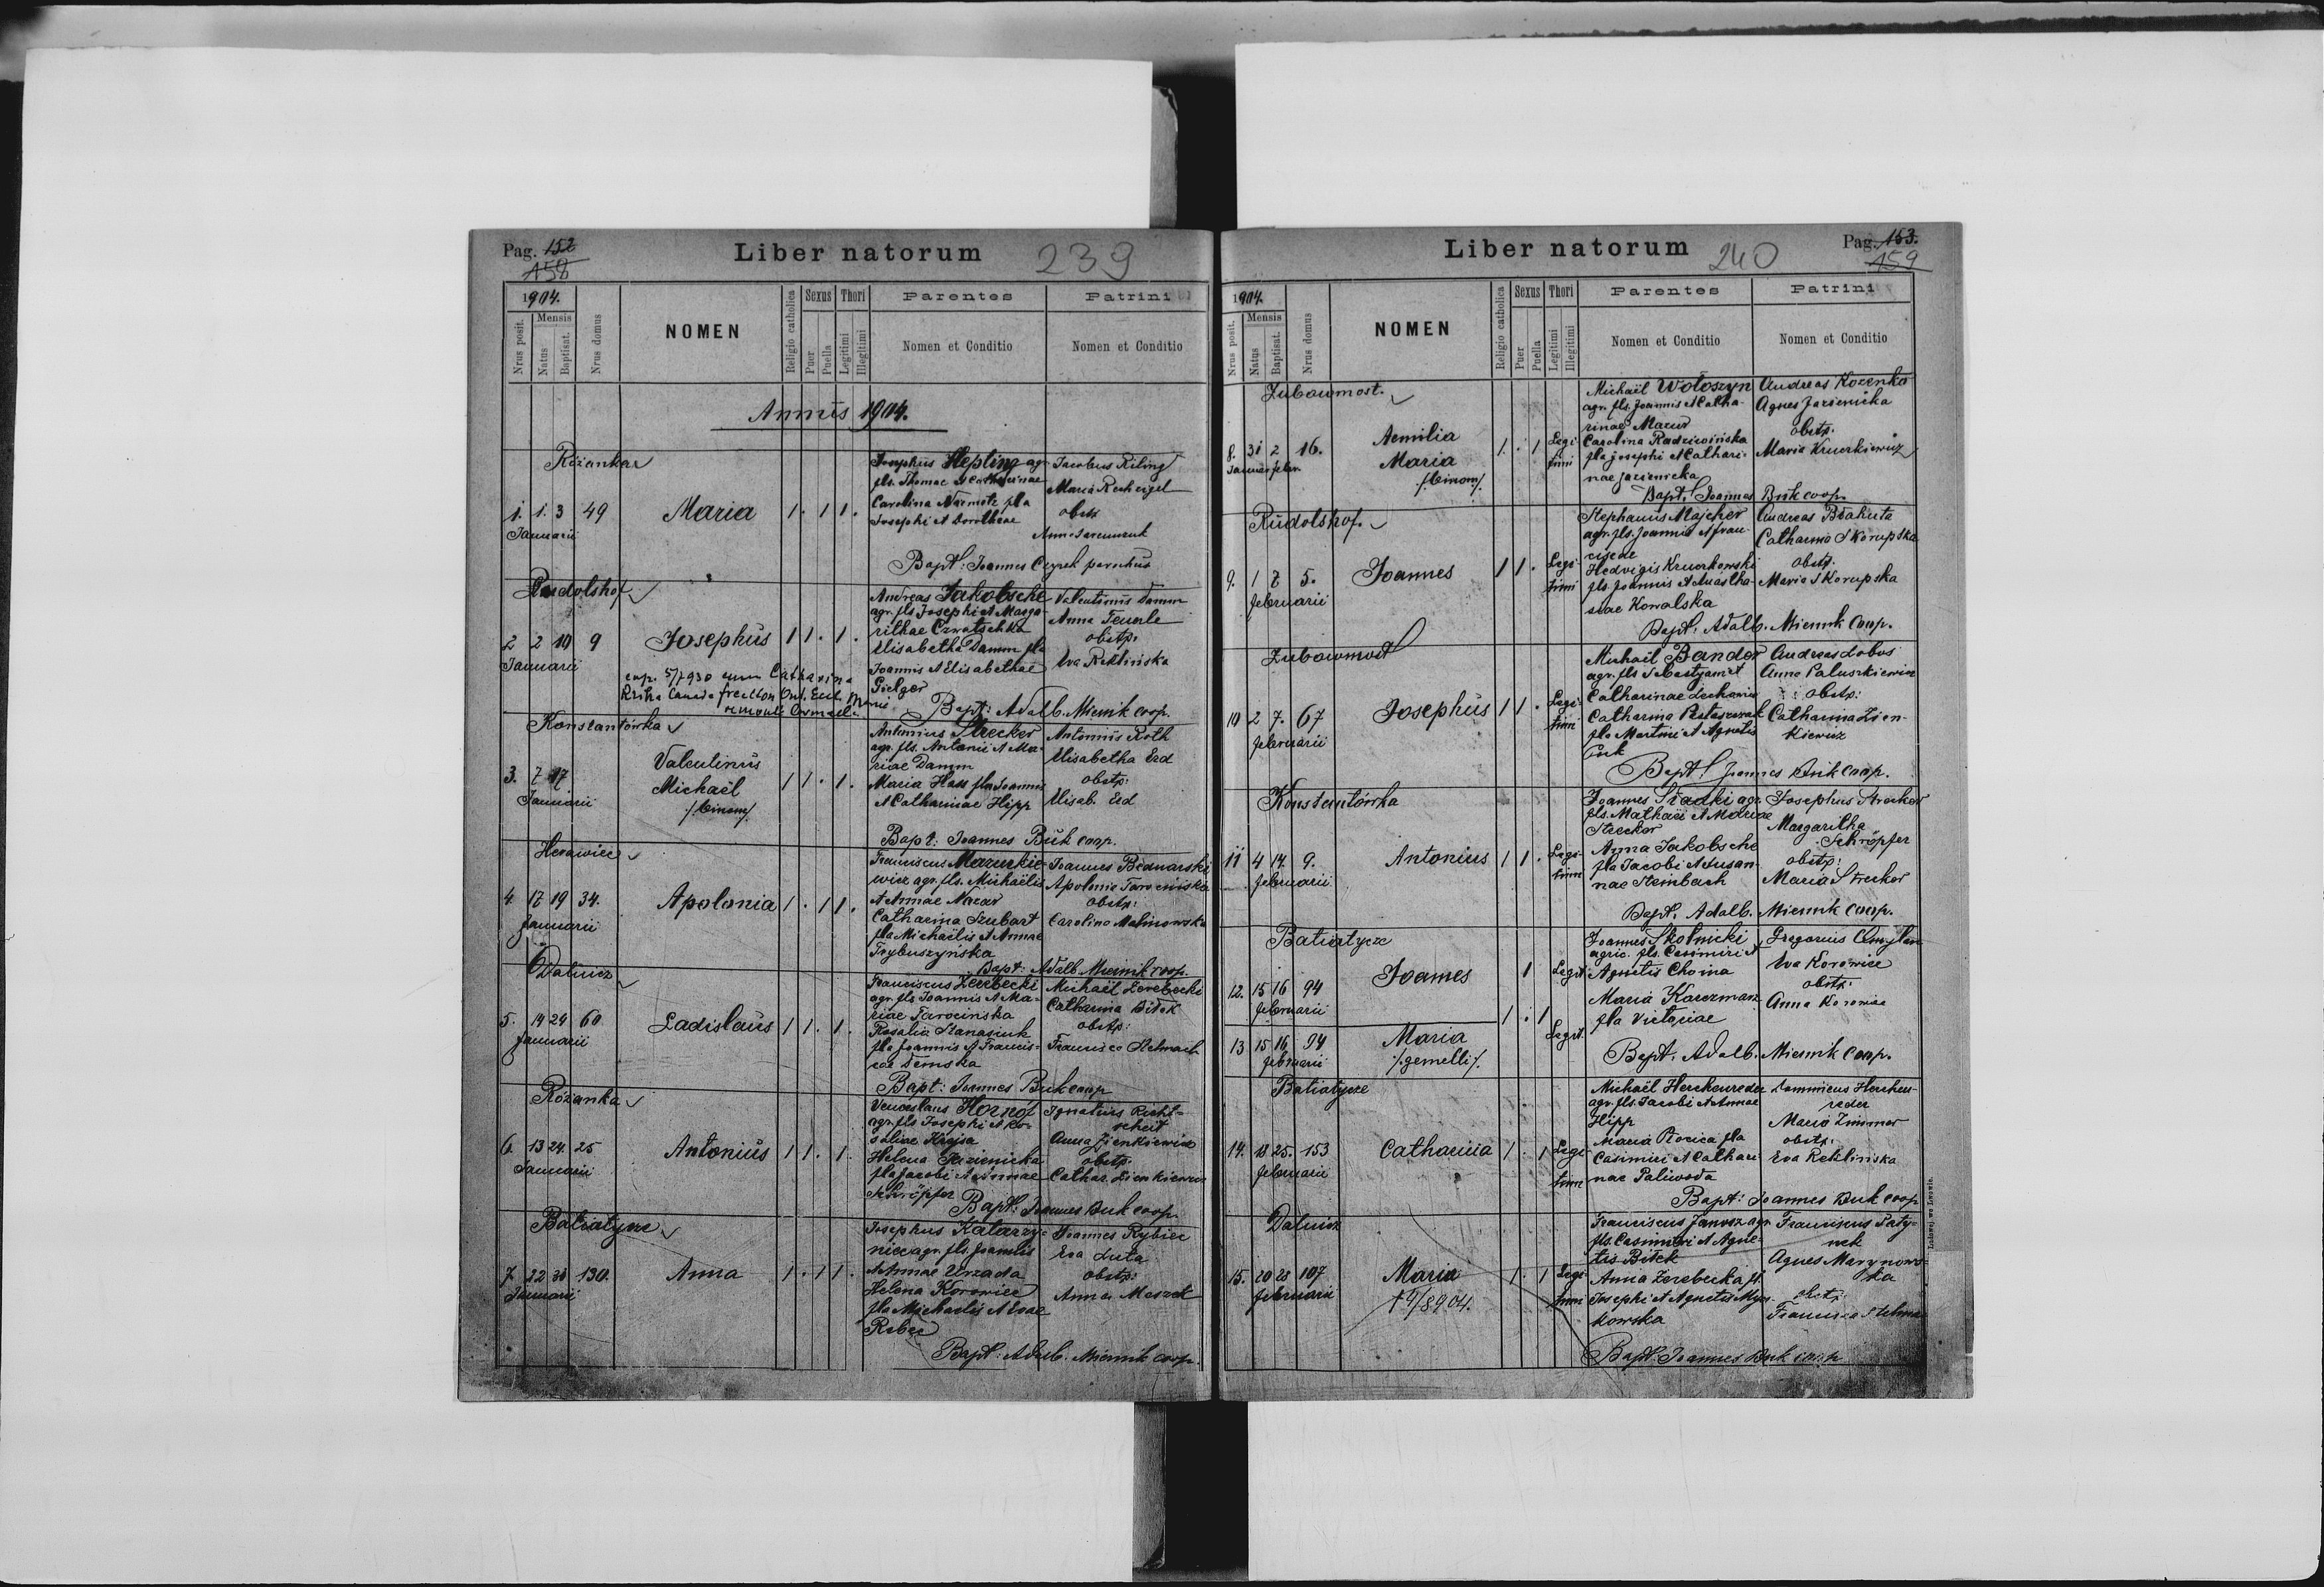 Pag. 152
158
Liber natorum 239
1904.
Nrus posit.
Mensis
Natus
Baptisat.
Nrus domus
NOMEN
Religio catholica
Sexus
Puer
Puella
Thori
Legitimi
Illegitimi
Parentes
Nomen et Conditio
Patrini
Nomen et Conditio
Annus 1904.
Różanka
1. 1. 3 49 Maria 1 . 1 1 .
Januarii
Josephus Hepting agr.
fls. Thomae et Catharinae
Carolina fla
Josephi et Dorotheae
Jacobus Kiling
Maria
obstp
Anna
Bapt: Joannes Czyrek parochus
Rudolshof
2 2 10 9 Josephus 1 1 . 1 .
Januarii
cop. 5/7930 cum Catharina
Canada Ont.
Andreas Jakobsche
agr. fls Josephi et Marga-
rithae Czwatschka
Elisabetha Damm fla
Joannis et Elisabethae
Pielger
Valentinus Damm
Anna Feuerle
obstp:
Eva Reklińska
Bapt: Adalb. Miernik coop.
Konstantówka
3. 7 17 Valentinus
Michaël
/binom/
1 1 . 1 .
Januarii
Antonius Strecker
agr. fls. Antonii et Ma-
riae Damm
Maria Hass fla Joannis
et Catharinae Hipp
Antonius Roth
Elisabetha Erd
obstp:
Elisab. Erd
Bapt: Joannes Buk coop.
Herawiec
4. 17 19 34. Apolonia 1 . 1 1 .
Januarii
Franciscus Mazurkie-
wicz agr. fls. Michaëlis
et Annae Nazar
Catharina Szubart
fla Michaëlis et Annae
Trybuszyńska
Joannes Bednarski
Apolonia Tarocińska
obstp:
Carolina Malinowska
Bapt: Adalb. Miernik coop.
Dalnicz
5. 19 24 60 Ladislaus 1 1 . 1 .
Januarii
Franciscus Zerebecki
agr. fls Joannis et Ma-
riae Tarocinska
Rosalia Stanasiuk
fla Joannis et Francis-
cae Demska
Michaël Zerebecki
Catharina Bitek
obstp:
Francisca Stelmach
Bapt: Joannes Buk coop
Różanka
6. 13 24. 25 Antonius 1 1 . 1 .
Januarii
Venceslaus Hornóf
agr. fls Josephi et Ro-
saliae Krejsa
Helena Jazienicka
fla Jacobi et Annae
Schröpfer
Ignatius Richt-
scheit
Anna Zienkiewicz
obstp.
Cathar. Zienkiewicz
Bapt: Joannes Buk coop.
Batiatycze
7. 22 30 130. Anna 1 . 1 1 .
Januarii
Josephus Katarzy-
niec agr. fls. Joannis
et Annae Urzada
Helena Korowiec
fla Michaelis et Evae
Joannes Rybiec
Eva Luta
obstp:
Anna Maszek
Bapt: Adalb. Miernik coop.
Liber natorum 240
Pag. 153.
159
1904.
Nrus posit.
Mensis
Natus
Baptisat.
Nrus domus
NOMEN
Religio catholica
Sexus
Puer
Puella
Thori
Legitimi
Illegitimi
Parentes
Nomen et Conditio
Patrini
Nomen et Conditio
Zubowmost.
8. 31 2 16. Aemilia
Maria
/binom/
1. . 1 Legi-
timi
Michaël Wołoszyn
agr. fls. Joannis et Catha-
rinae Mazur
Carolina Radziwińska
fla Josephi et Cathari-
nae Jazienicka
Andreas Kozenko
Agnes Jazienicka
obstp.
Maria Kruczkiewicz
Bapt. Joannes Buk coop.
Rudolshof.
9. 1 7 5. Joannes 1 1 . Legi-
timi
februarii
Stephanus Majcher
agr. fls. Joannis et Fran-
ciscae
Hedvigis
fla Joannis et Anastha-
siae Kowalska
Andreas Błakuta
Catharina Skorupska
obstp:
Maria Skorupska
Bapt. Adalb. Miernik coop.
Zubowmost
10 2 7. 67 Josephus 1 1 . Legi-
timi
februarii
Michaël Bandor
agr. fls Sebastyani et
Catharinae Lechowicz
Catharina
fla Martini et Agnetis
Andreas Lobos
Anna Paluszkiewicz
obstp:
Catharina Zien-
kiewicz
Bapt. Joannes Buk coop.
Konstantówka
11 4 14. 9. Antonius 1 1 . Legi-
timi
februarii
Joannes Sładki agr.
fls. Mathaei et Mariae
Strecker
Anna Jakobsche
fla Jacobi et Susan-
nae Steinbach
Josephus Strecker
Margaritha
Schröpfer
obstp:
Maria Strecker
Bapt. Adalb. Miernik coop.
Batiatycze
12. 15 16 94 Joannes 1 Legit.
februarii
13 15 16 94 Maria
/gemelli/.
1 . 1 Legit.
februarii
Joannes Skolnicki
agric. fls. Casimiri et
Agnetis Choina
Maria Karczmarz
fla Victoriae
Gregorius
Eva Korowiec
obstp:
Anna Korowiec
Bapt. Adalb. Miernik coop.
Batiatycze
14. 18 25. 153 Catharina 1 . 1 Legi-
timi
februarii
Michaël Herckenreder
agr. fls. Jacobi et Annae
Hipp
Maria Rocica fla
Casimiri et Cathari-
nae Paliwoda
Dominicus Hercken-
reder
Maria Zimmer
obstp:
Eva Reklińska
Bapt: Joannes Buk coop
Dalnicz
15. 20 28 107 Maria
† 4/8 904.
1. . 1 Legi-
timi
februarii
Franciscus Janosz agr.
fls. Casimiri et Agne-
tis Bitek
Anna Zerebecka fl.
Josephi et Agnetis
kowska
Franciscus Saty-
nek
Agnes Marynows-
ka
obstp:
Francisca Stelma
Bapt: Joannes Buk coop